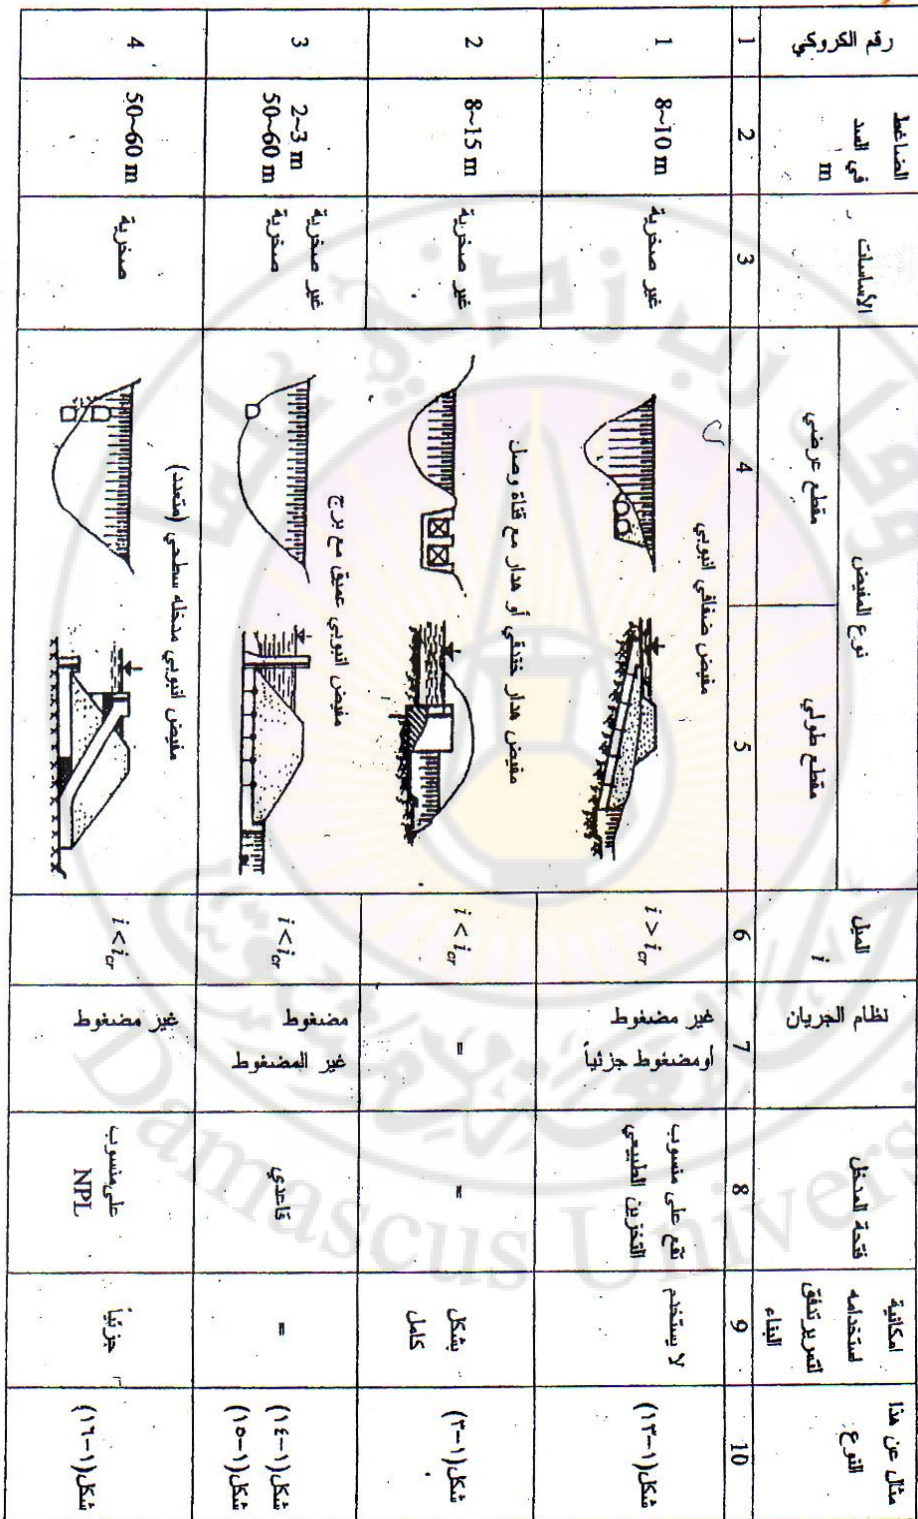 رقم الكروكي
الضاغط
في السد
m
الأساسات
نوع المفيض
مقطع عرضي
مقطع طولي
الميل
i
نظام الجريان
فتحة المدخل
امكانية
استخدامه
لتمرير تدفق
البناء
مثال عن هذا
النوع
1
2
3
4
5
6
7
8
9
10
1
8~10 m
غير صخرية
مفيض ضفافي انبوبي
i > i_cr
غير مضغوط
أومضغوط جزئياً
تقع على منسوب
التخزين الطبيعي
لا يستخدم
شكل(١-١٣)
2
8~15 m
غير صخرية
مفيض هدار خندقي أو هدار مع قناة وصل
i < i_cr
=
=
بشكل
كامل
شكل(١-٣)
3
2~3 m
50~60 m
غير صخرية
صخرية
مفيض انبوبي عميق مع برج
i < i_cr
مضغوط
غير المضغوط
قاعدي
=
شكل(١-١٤)
شكل(١-١٥)
4
50~60 m
صخرية
مفيض انبوبي مدخله سطحي (متعدد)
i < i_cr
غير مضغوط
على منسوب
NPL
جزئياً
شكل(١-١٦)
Damascus Univers